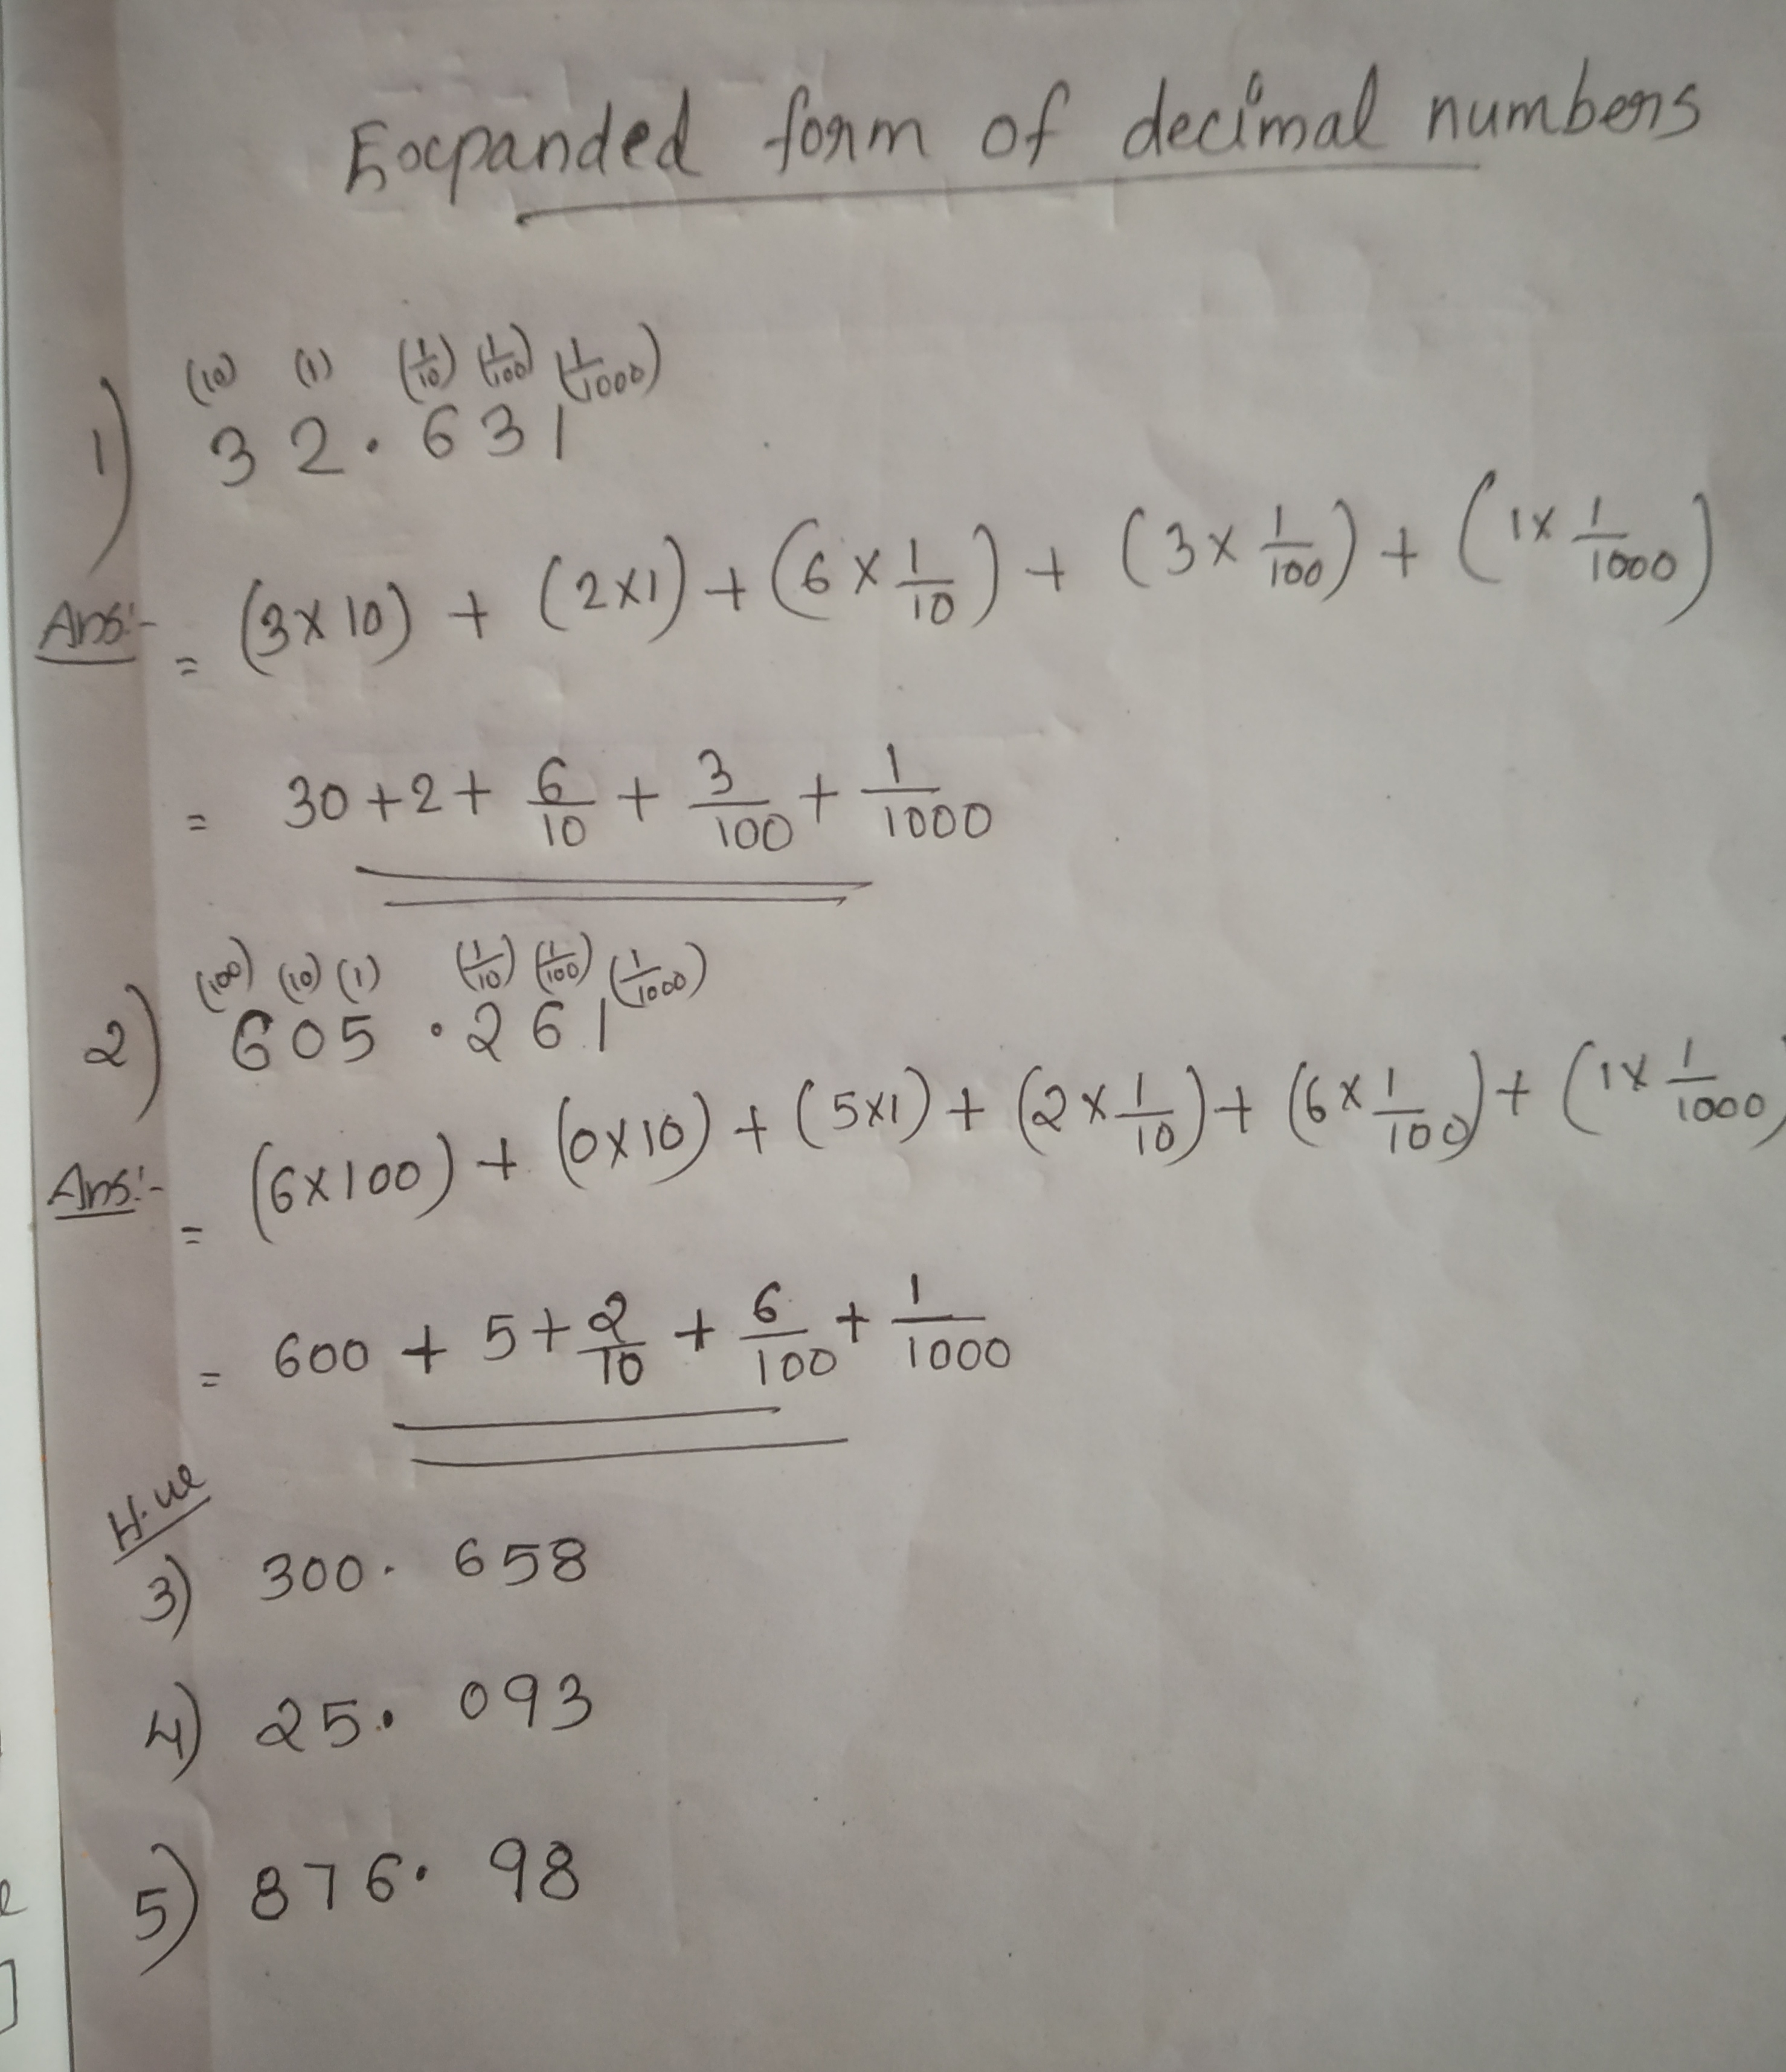 Expanded form of decimal numbers
(10) (1) (1/10) (1/100) (1/1000)
1) 32.631
Ans:- = (3×10) + (2×1) + (6×1/10) + (3×1/100) + (1×1/1000)
= 30+2+ 6/10 + 3/100 + 1/1000
(100) (10) (1) (1/10) (1/100) (1/1000)
2) 605.261
Ans:- = (6×100) + (0×10) + (5×1) + (2×1/10) + (6×1/100) + (1×1/1000)
= 600 + 5 + 2/10 + 6/100 + 1/1000
H.w
3) 300.658
4) 25.093
5) 876.98